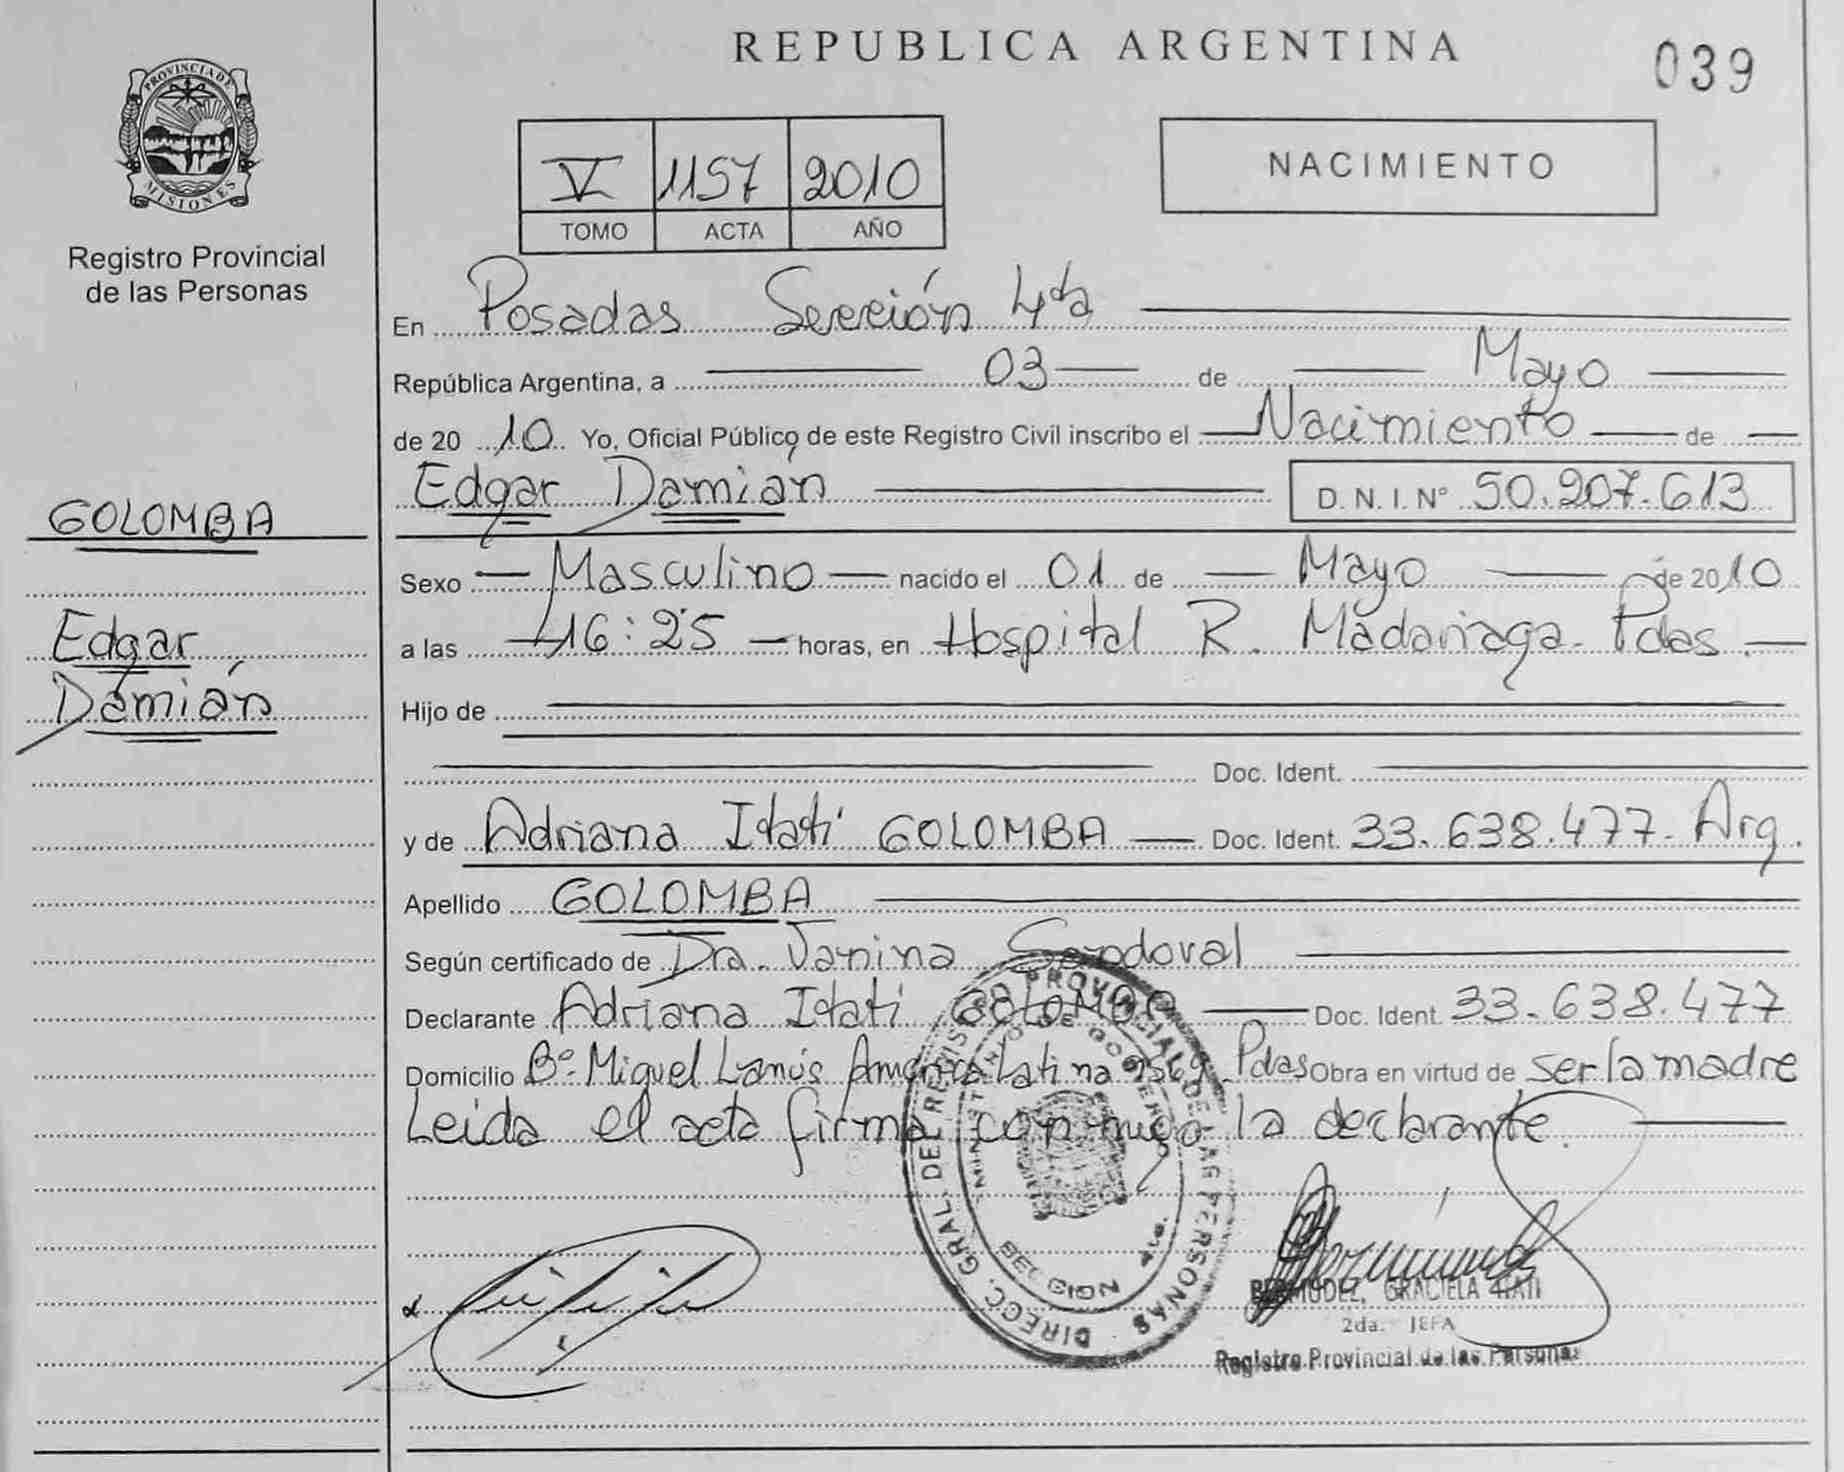 REPUBLICA ARGENTINA
039
PROVINCIA DE
MISIONES
Registro Provincial
de las Personas
V 1157 2010
TOMO ACTA AÑO
NACIMIENTO
En Posadas Sección 4ta
República Argentina, a 03 de Mayo
de 20 10 Yo, Oficial Público de este Registro Civil inscribo el Nacimiento de
Edgar Damián D.N.I.N° 50.207.613
GOLOMBA
Edgar
Damián
Sexo Masculino nacido el 01 de Mayo de 2010
a las 16:25 horas, en Hospital R. Madariaga - Pdas.
Hijo de
Doc. Ident.
y de Adriana Itatí GOLOMBA Doc. Ident. 33.638.477- Arg.
Apellido GOLOMBA
Según certificado de Dra. Janina Sandoval
Declarante Adriana Itatí GOLOMBA Doc. Ident. 33-638.477
Domicilio B° Miguel Lanús América Latina Pdas Obra en virtud de ser la madre
Leida el acta firma conmigo la declarante.
DIRECC. GRAL. DEL REGISTRO PROVINCIAL DE LAS PERSONAS
MINISTERIO DE GOBIERNO
SECCION 4ta.
BERMUDEZ, GRACIELA ITATI
2da. JEFA
Registro Provincial de las Personas